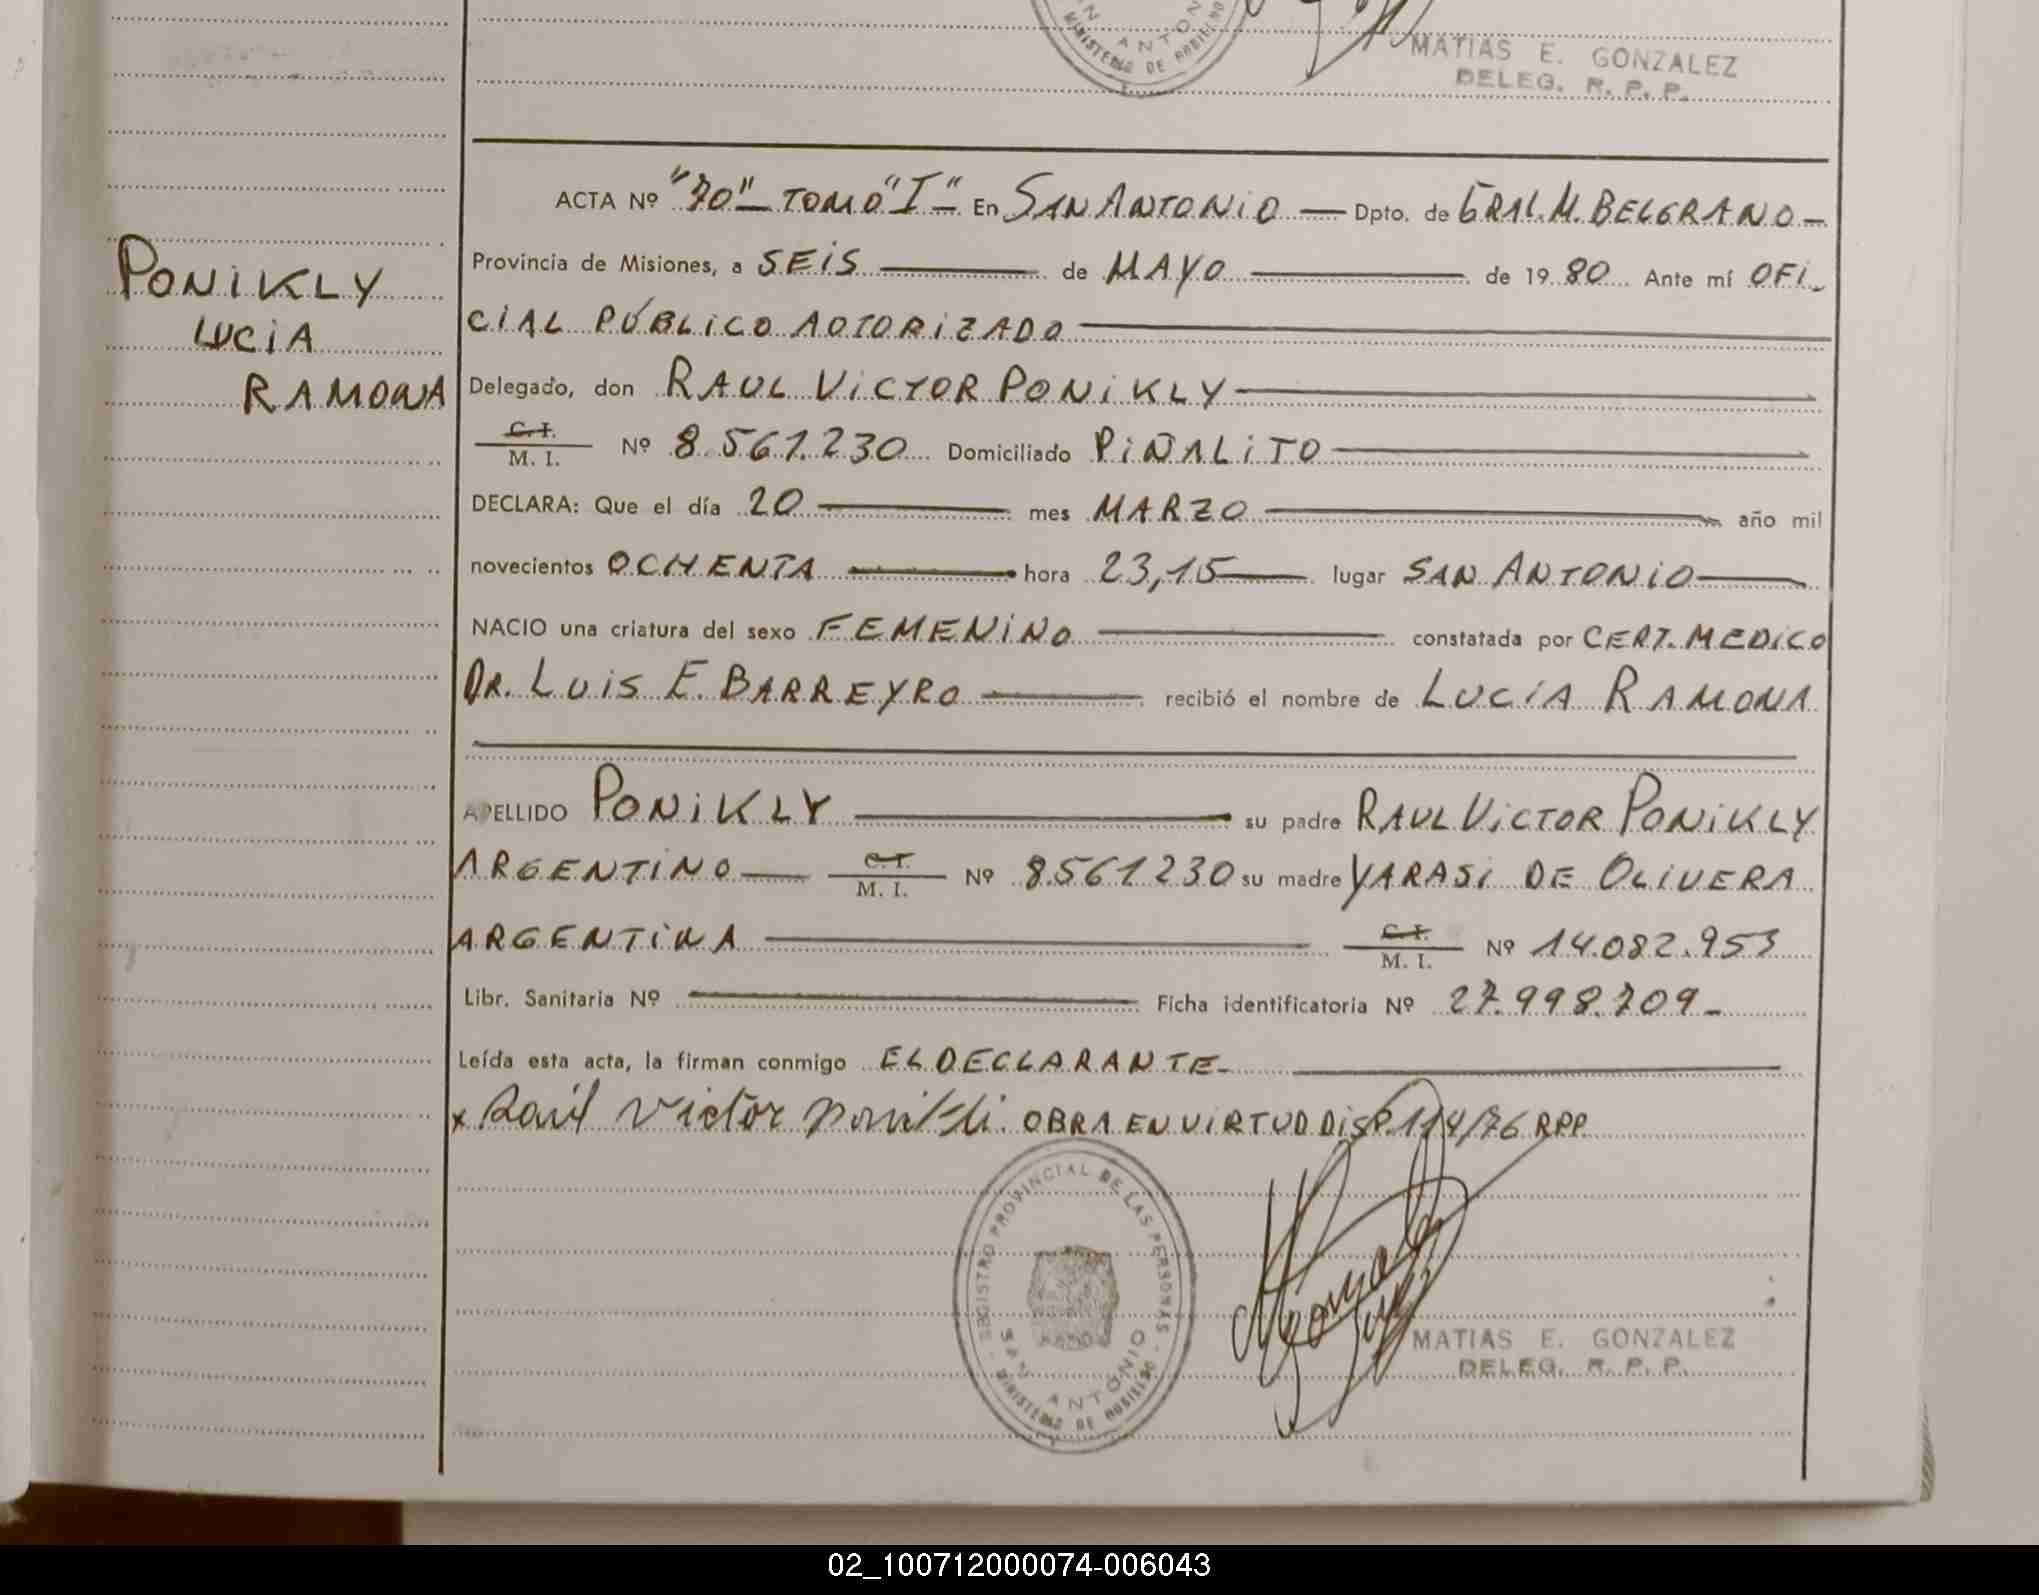 MATIAS E. GONZALEZ
DELEG. R. P. P.
SAN ANTONIO
MINISTERIO DE GOBIERNO
PONIKLY
LUCIA
RAMONA
ACTA Nº "70" TOMO "I" En SAN ANTONIO — Dpto. de GRAL. M. BELGRANO —
Provincia de Misiones, a SEIS — de MAYO — de 1980 Ante mí OFI-
CIAL PÚBLICO AUTORIZADO —
Delegado, don RAUL VICTOR PONIKLY —
C. I.
M. I. Nº 8.561.230 Domiciliado PIÑALITO —
DECLARA: Que el día 20 — mes MARZO — año mil
novecientos OCHENTA — hora 23,15 — lugar SAN ANTONIO —
NACIO una criatura del sexo FEMENINO — constatada por CERT. MEDICO
DR. LUIS E. BARREYRO — recibió el nombre de LUCÍA RAMONA
APELLIDO PONIKLY — su padre RAUL VICTOR PONIKLY
ARGENTINO — C. I. / M. I. Nº 8.561230 su madre YARASI DE OLIVERA
ARGENTINA — C. I. / M. I. Nº 14.082.953
Libr. Sanitaria Nº — Ficha identificatoria Nº 27.998.709 -
Leída esta acta, la firman conmigo EL DECLARANTE -
x Raúl Victor Ponikli. OBRA EN VIRTUD DISP. 114/76 RPP.
REGISTRO PROVINCIAL DE LAS PERSONAS
SAN ANTONIO
MINISTERIO DE GOBIERNO
MATIAS E. GONZALEZ
DELEG. R. P. P.
02_100712000074-006043